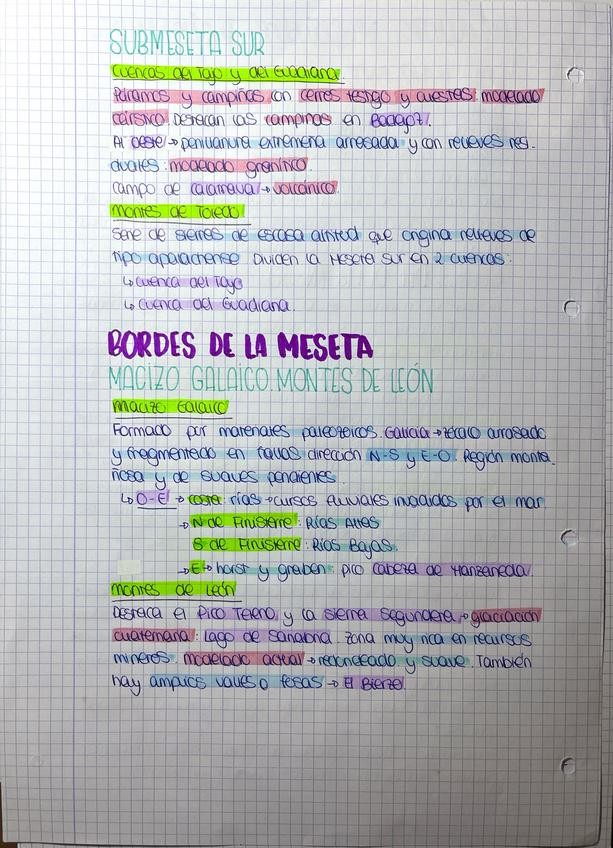 SUBMESETA SUR
Cuencas del Tajo y del Guadiana
Páramos y campiñas con cerros testigo y cuestas: modelado
cárstico. Destacan las campiñas en Badajoz.
Al oeste → penillanura extremeña arrasada y con relieves resi-
duales: modelado granítico.
Campo de Calatrava → volcánico.
Montes de Toledo
Serie de sierras de escasa altitud que origina relieves de
tipo apalachense. Dividen la Meseta Sur en 2 cuencas:
↳ cuenca del Tajo
↳ cuenca del Guadiana.
BORDES DE LA MESETA
MACIZO GALAICO. MONTES DE LEÓN
Macizo Galaico
Formado por materiales paleozoicos. Galicia → zócalo arrasado
y fragmentado en fallas dirección N-S y E-O. Región monta-
ñosa y de suaves pendientes.
↳ O-E → costa: rías → cursos fluviales invadidos por el mar.
→ N de Finisterre: Rías Altas
S de Finisterre: Rías Bajas.
→ E → horst y graben: pico Cabeza de Manzaneda.
Montes de León
Destaca el Pico Teleno y la sierra Segundera → glaciación
cuaternaria: Lago de Sanabria. Zona muy rica en recursos
mineros. Modelado actual → redondeado y suave. También
hay amplios valles o fosas → El Bierzo.